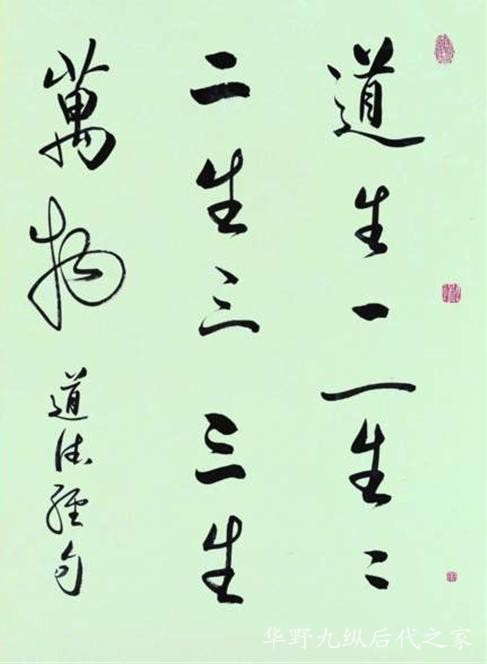 道生一一生二
二生三三生
萬物
道德經句
华野九纵后代之家